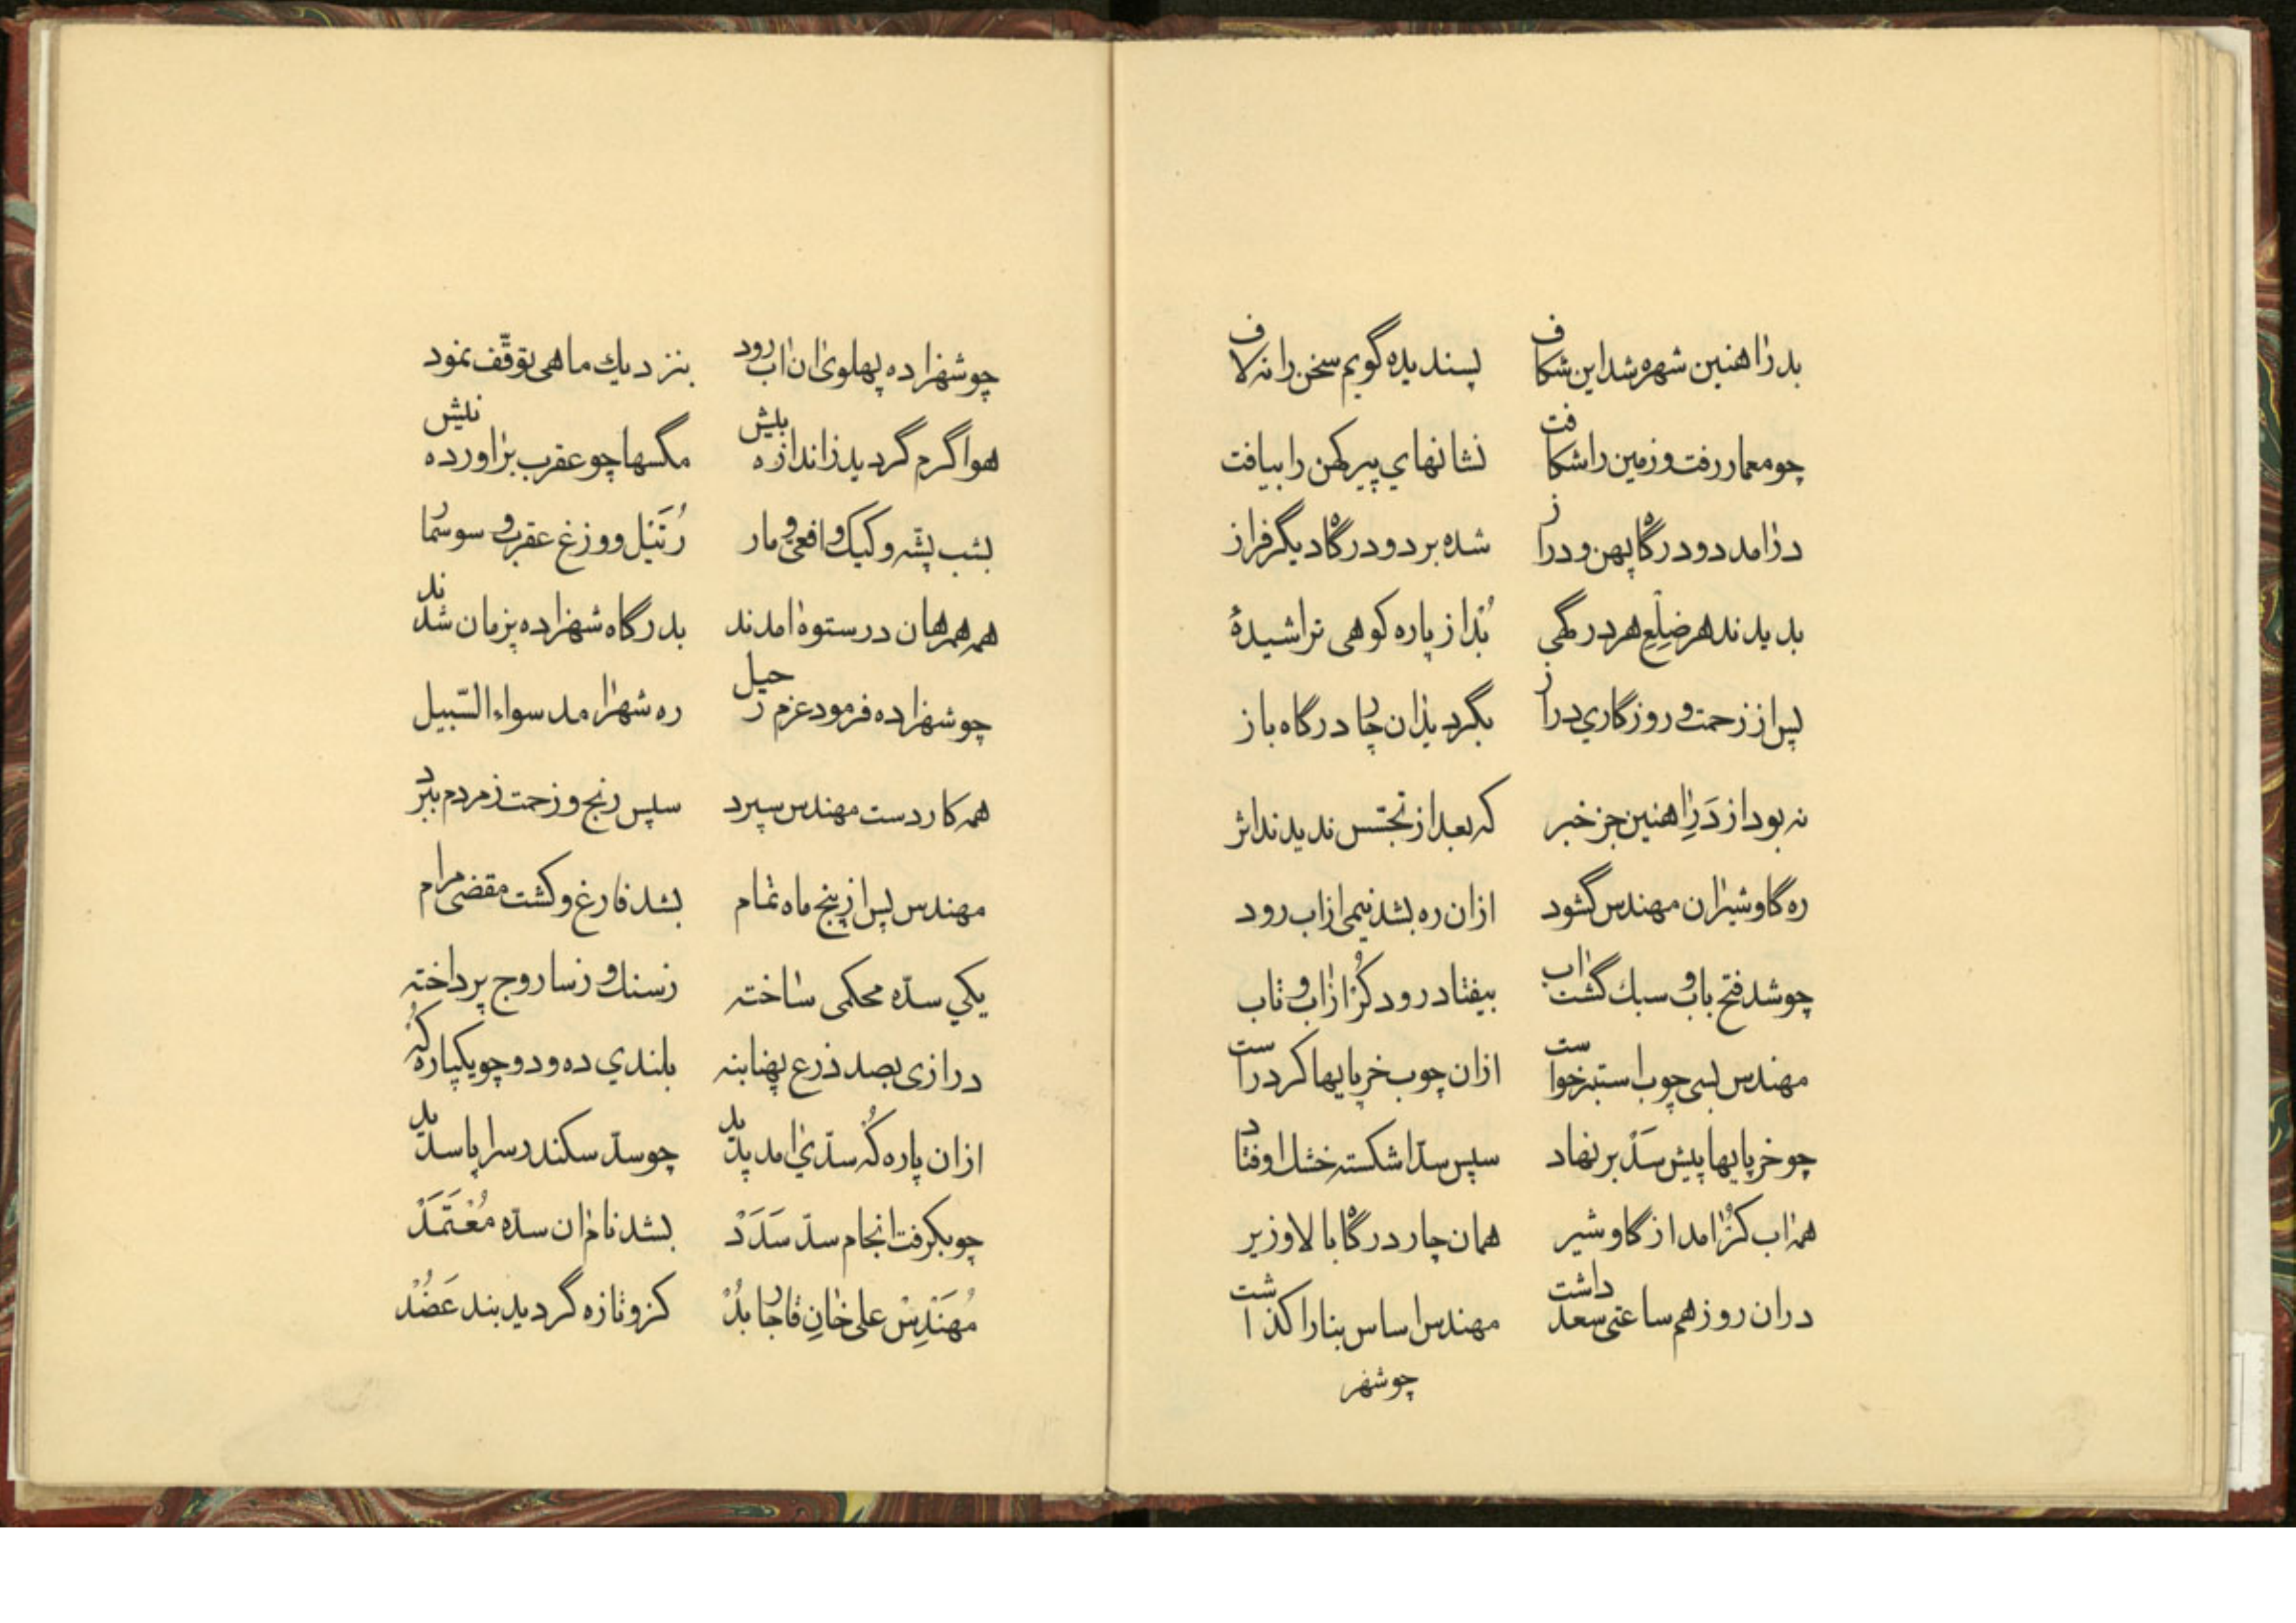 بدرٰاهنین شهره شد این شکاف پسندیده گویم سخن را نه لاف
چو معمار رفت و زمین را شکافت نشانهای پیر کهن را بیافت
درٰامد دو درگاه پهن و دراز شده بر دو درگاه دیگر فراز
بدیدند هر ضِلعِ هر درگهی بُدْ از پاره کوهی تراشیدهٔ
پس از زحمت و روزگاری دراز بگردید زٰان چار درگاه باز
نه بود از دَرِاٰهنین جز خبر که بعد از تجسّس ندیدند اثر
ره گاوشیرٰان مهندس گشود ازان ره بشد نیمی ازاب رود
چو شد فتح باب و سبك گشت اٰب بیفتاد رود کُرْ ازٰاب و تاب
مهندس بسی چوب استبر خواست ازان چوب خرپایها کرد راست
چو خرپایها پیش سَدْ بر نهاد سپس سدّ اشکسته خشل اوفتاد
همه اٰب کُرْ اٰمد از گاوشیر همان چار درگاه بالا و زیر
دران روز هم ساعتی سعد داشت مهندس اساس بنا را کذاشت
چو شهز
چو شهزاده پهلوی اٰن اٰب رود بنزدیك ماهی توقّف نمود
هوا گرم گردید زاندازه بیش مگسها چو عقرب براٰورده نیش
بشب پشّه و کیك و افعی و مار رُتَیْل و وزغ عقرب و سوسمار
همه همرهان در ستوه اٰمدند بدرگاه شهزاده پزمان شدند
چو شهزاده فرمود عزم رحیل ره شهر اٰمد سواء السّبیل
همه کار دست مهندس سپرد سپس رنج و زحمت ز مردم ببرد
مهندس پس از پنج ماه تمام بشد فارغ و کشت مقضی مرام
یکی سدّه محکمی ساخته ز سنك و ز ساروج پرداخته
درازی بصد ذرع پهنا بنه بلندی ده و دو چو یکپاره کُهْ
ازان پاره کُهْ سدّی اٰمد پدید چو سدّ سکندر سراپا سدید
چو بکرفت انجام سدّ سَدَدْ بشد نام اٰن سدّه مُعْتَمَدْ
مُهَنْدِسْ علی خٰانِ قاجار بُدْ کزو تازه گردید بند عَضُدْ